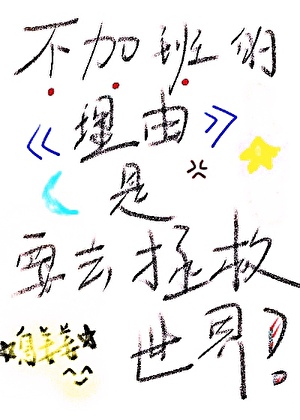 不加班的
《理由》
是
要去拯救
世界?